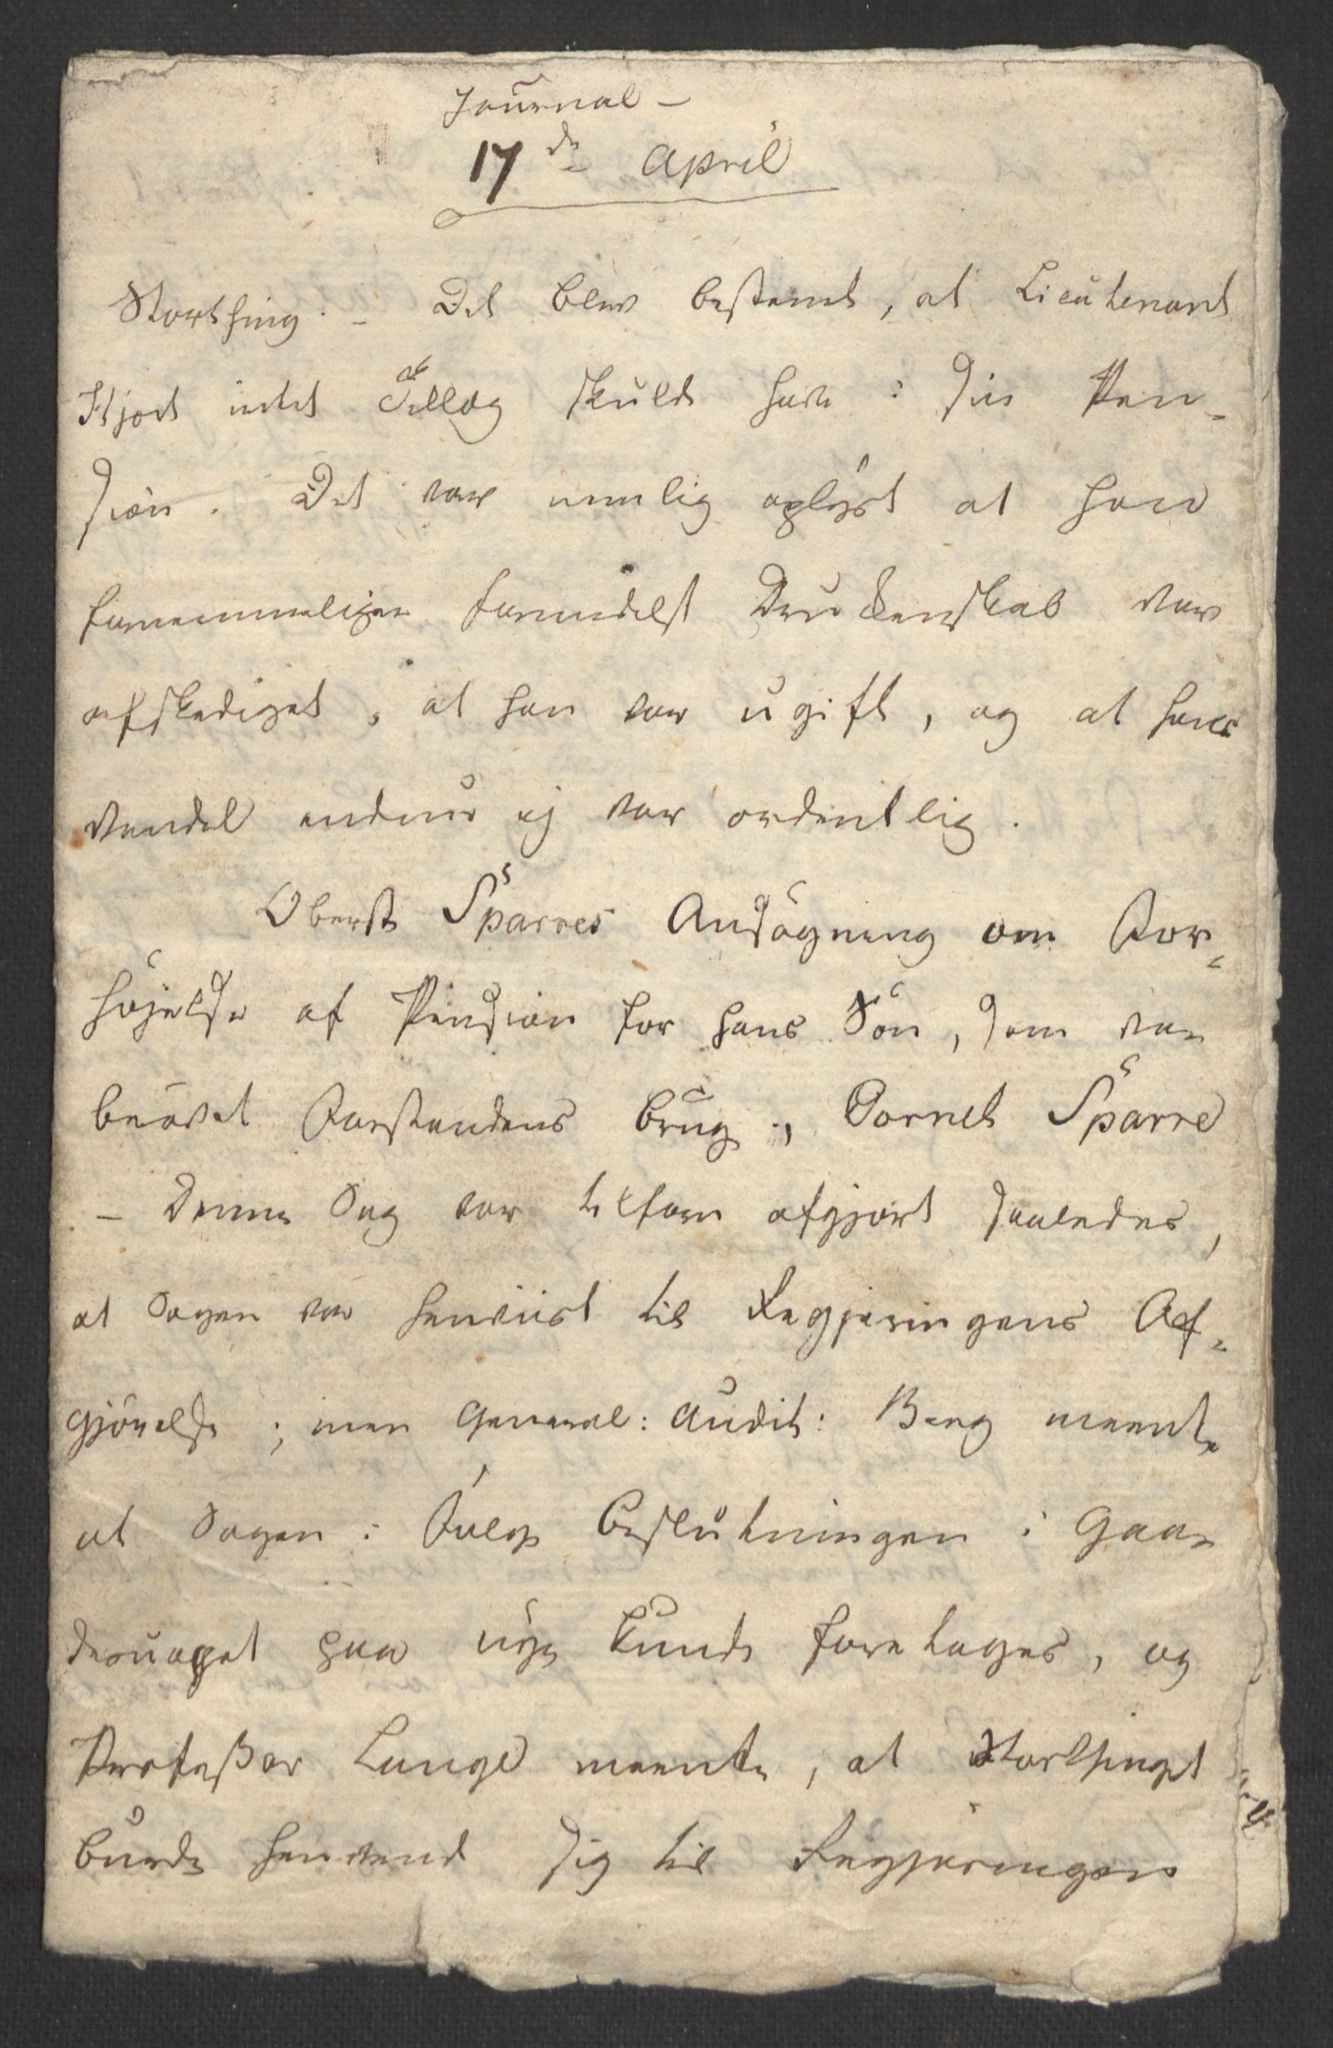 Journal –
17de April
Storthing. – Det blev bestemt, at Lieutenant
Hjort intet Tillæg skulde have i sin Pen-
sion. Det var nemlig oplyst at han
fornemmeligen formedelst Druckenskab var
afskediget, at han var ugift, og at hans
Vandel endnu ej var ordentlig.
Oberst Sparres Ansögning om For-
höjelse af Pension for hans Sön, som var
berövet Forstandens Brug, Cornet Sparre
– Denne Sag var tilforn afgjort saaledes,
at Sagen var henviist til Regjeringens Af-
gjörelse; men General: Audit: Berg meente
at Sagen i Fölge Beslutningen i Gaar
derom paa nye kunde foretages, og
Professor Lange meente, at Storthinget
burde henvende sig til Regjeringen